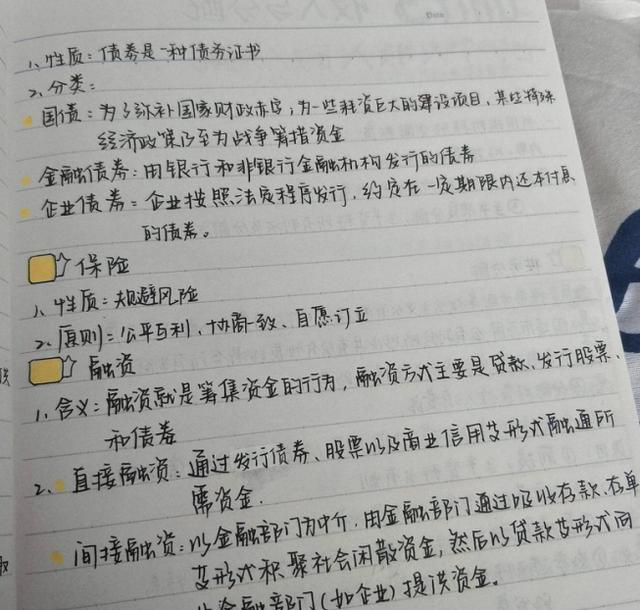 Date
1、性质：债券是一种债务证书
2、分类：
国债：为了弥补国家财政赤字，为一些耗资巨大的建设项目、某些特殊
经济政策乃至为战争筹措资金
金融债券：由银行和非银行金融机构发行的债券
企业债券：企业按照法定程序发行，约定在一定期限内还本付息
的债券。
保险
1、性质：规避风险
2、原则：公平互利、协商一致、自愿订立
融资
1、含义：融资就是筹集资金的行为，融资方式主要是贷款、发行股票、
和债券
2、直接融资：通过发行债券、股票以及商业信用等形式融通所
需资金.
间接融资：以金融部门为中介，由金融部门通过吸收存款、存单
等形式积聚社会闲散资金，然后以贷款等形式向
非金融部门(如企业)提供资金。